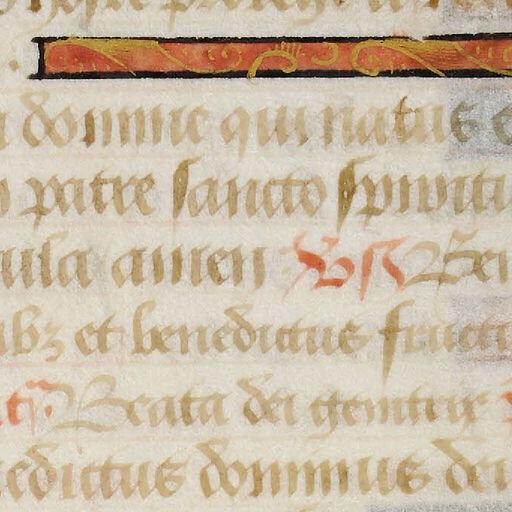 domine qui natus
patre sancto spiritu
ula amen
ubꝫ et benedictus fructu
Beata dei genitrix
edictus dominus dei